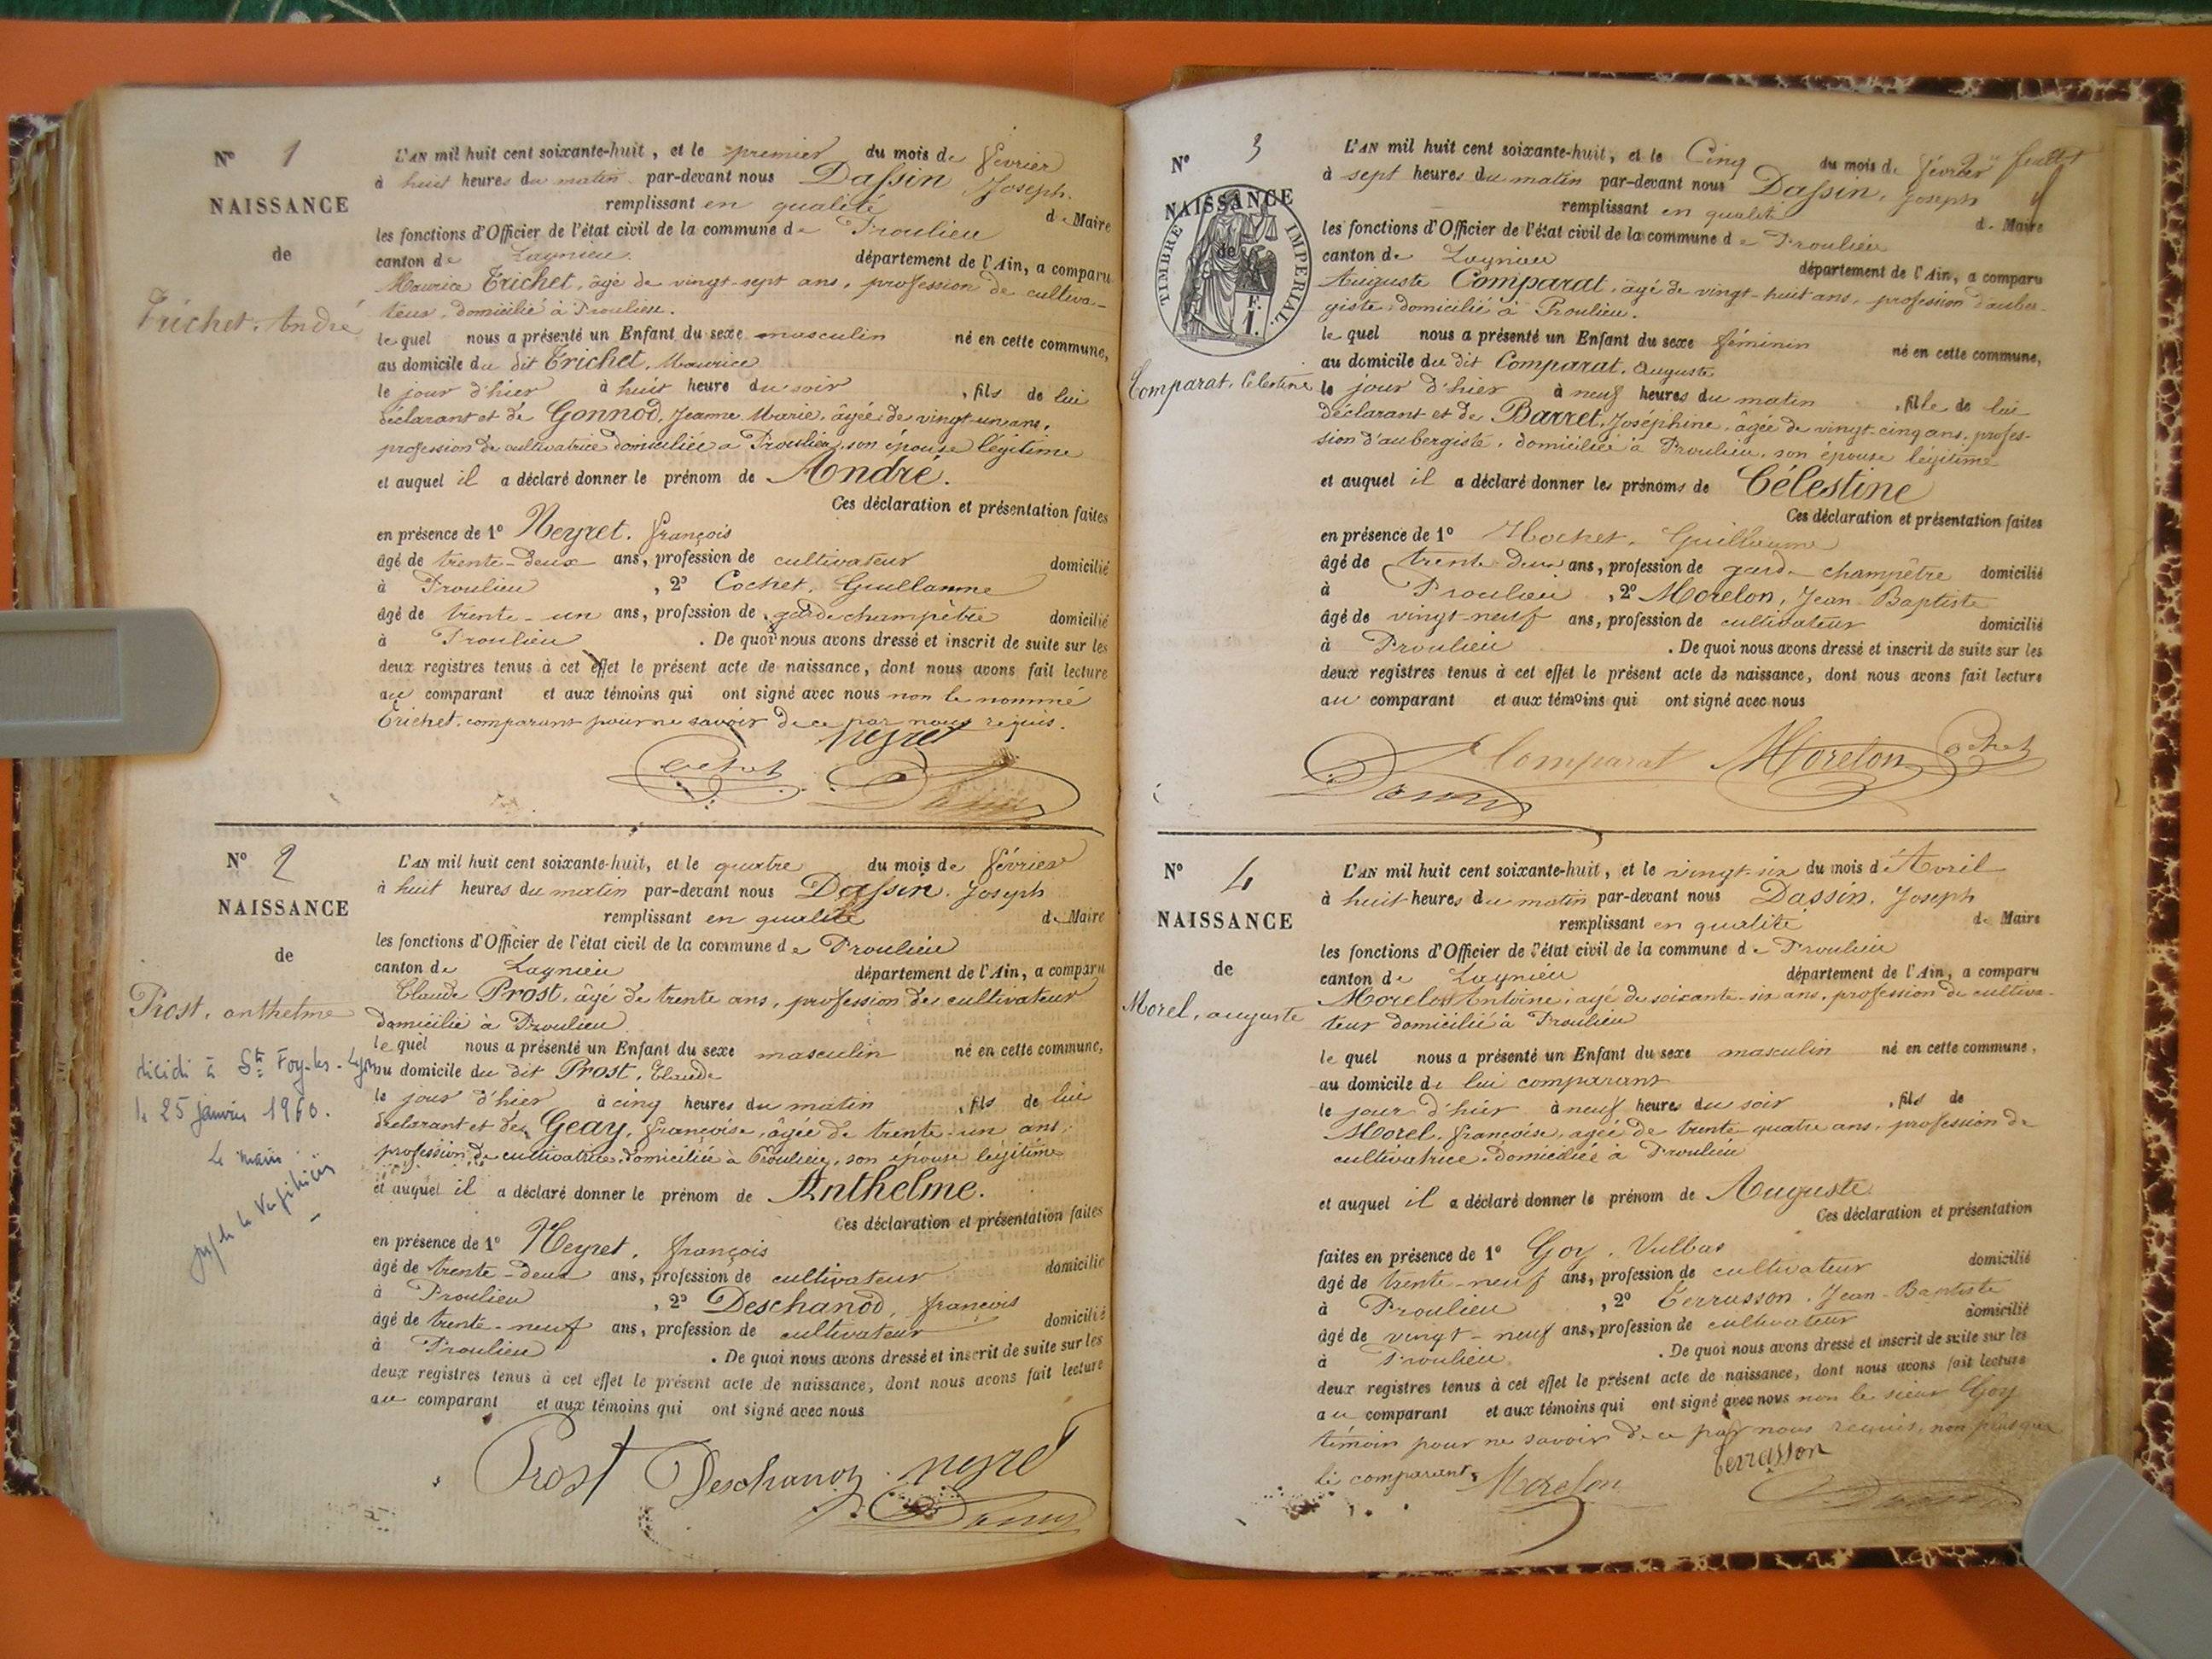 Nº 1
NAISSANCE
de
Trichet, André
L'AN mil huit cent soixante-huit, et le premier du mois de février
à huit heures du matin par-devant nous Dassin Joseph.
remplissant en qualité de Maire
les fonctions d'Officier de l'état civil de la commune de Proulieu
canton de Lagnieu. département de l'Ain, a comparu
Maurice Trichet, âgé de vingt-sept ans, profession de cultiva-
teur, domicilié à Proulieu.
lequel nous a présenté un Enfant du sexe masculin né en cette commune,
au domicile du dit Trichet, Maurice
le jour d'hier à huit heure du soir, fils de lui
déclarant et de Gonnod, Jeanne Marie, âgée de vingt-un ans,
profession de cultivatrice domiciliée à Proulieu, son épouse légitime
et auquel il a déclaré donner le prénom de André.
Ces déclaration et présentation faites
en présence de 1º Neyret, françois
âgé de trente-deux ans, profession de cultivateur domicilié
à Proulieu, 2º Cochet, Guillaume
âgé de trente-un ans, profession de garde champêtre domicilié
à Proulieu. De quoi nous avons dressé et inscrit de suite sur les
deux registres tenus à cet effet le présent acte de naissance, dont nous avons fait lecture
au comparant et aux témoins qui ont signé avec nous non le nommé
Trichet, comparant pour ne savoir de ce par nous requis.
Neyret
Cochet Dassin
Nº 2
NAISSANCE
de
Prost, anthelme
décédé à Ste Foy-les-Lyon
le 25 janvier 1960.
Le maire
L'AN mil huit cent soixante-huit, et le quatre du mois de février
à huit heures du matin par-devant nous Dassin, Joseph
remplissant en qualité de Maire
les fonctions d'Officier de l'état civil de la commune de Proulieu
canton de Lagnieu département de l'Ain, a comparu
Claude Prost, âgé de trente ans, profession de cultivateur
domicilié à Proulieu
lequel nous a présenté un Enfant du sexe masculin né en cette commune,
au domicile du dit Prost, Claude
le jour d'hier à cinq heures du matin, fils de lui
déclarant et de Geay, françoise, âgée de trente-un ans,
profession de cultivatrice, domiciliée à Proulieu, son épouse légitime
et auquel il a déclaré donner le prénom de Anthelme.
Ces déclaration et présentation faites
en présence de 1º Neyret, françois
âgé de trente-deux ans, profession de cultivateur domicilié
à Proulieu, 2º Deschanod, françois
âgé de trente-neuf ans, profession de cultivateur domicilié
à Proulieu. De quoi nous avons dressé et inscrit de suite sur les
deux registres tenus à cet effet le présent acte de naissance, dont nous avons fait lecture
au comparant et aux témoins qui ont signé avec nous
Prost Deschanod neyret
Dassin
Nº 3
NAISSANCE
de
TIMBRE IMPERIAL
F.
1.
Comparat, Célestine
L'AN mil huit cent soixante-huit, et le Cinq du mois de février
à sept heures du matin par-devant nous Dassin, Joseph
remplissant en qualité de Maire
les fonctions d'Officier de l'état civil de la commune de Proulieu
canton de Lagnieu département de l'Ain, a comparu
Auguste Comparat, âgé de vingt-huit ans, profession d'auber-
giste, domicilié à Proulieu.
lequel nous a présenté un Enfant du sexe féminin né en cette commune,
au domicile du dit Comparat, Auguste
le jour d'hier à neuf heures du matin, fille de lui
déclarant et de Barret, Joséphine, âgée de vingt-cinq ans, profes-
sion d'aubergiste, domiciliée à Proulieu, son épouse légitime
et auquel il a déclaré donner les prénoms de Célestine
Ces déclaration et présentation faites
en présence de 1º Guillaume
âgé de trente deux ans, profession de garde champêtre domicilié
à Proulieu, 2º Morelon, Jean-Baptiste
âgé de vingt-neuf ans, profession de cultivateur domicilié
à Proulieu. De quoi nous avons dressé et inscrit de suite sur les
deux registres tenus à cet effet le présent acte de naissance, dont nous avons fait lecture
au comparant et aux témoins qui ont signé avec nous
Comparat Morelon Cochet
Dassin
Nº 4
NAISSANCE
de
Morel, auguste
L'AN mil huit cent soixante-huit, et le vingt-six du mois d'Avril
à huit heures du matin par-devant nous Dassin, Joseph
remplissant en qualité de Maire
les fonctions d'Officier de l'état civil de la commune de Proulieu
canton de Lagnieu département de l'Ain, a comparu
Morelon Antoine, âgé de soixante-six ans, profession de cultiva-
teur domicilié à Proulieu
lequel nous a présenté un Enfant du sexe masculin né en cette commune,
au domicile de lui comparant
le jour d'hier à neuf heures du soir, fils de
Morel, françoise, agée de trente-quatre ans, profession de
cultivatrice, domiciliée à Proulieu
et auquel il a déclaré donner le prénom de Auguste
Ces déclaration et présentation
faites en présence de 1º Goy, Vulbas domicilié
âgé de trente-neuf ans, profession de cultivateur
à Proulieu, 2º Terrasson, Jean-Baptiste
âgé de vingt-neuf ans, profession de cultivateur domicilié
à Proulieu. De quoi nous avons dressé et inscrit de suite sur les
deux registres tenus à cet effet le présent acte de naissance, dont nous avons fait lecture
au comparant et aux témoins qui ont signé avec nous non le sieur Goy
témoin pour ne savoir de ce par nous requis, non plus que
le comparant. Morelon Terrasson
Dassin